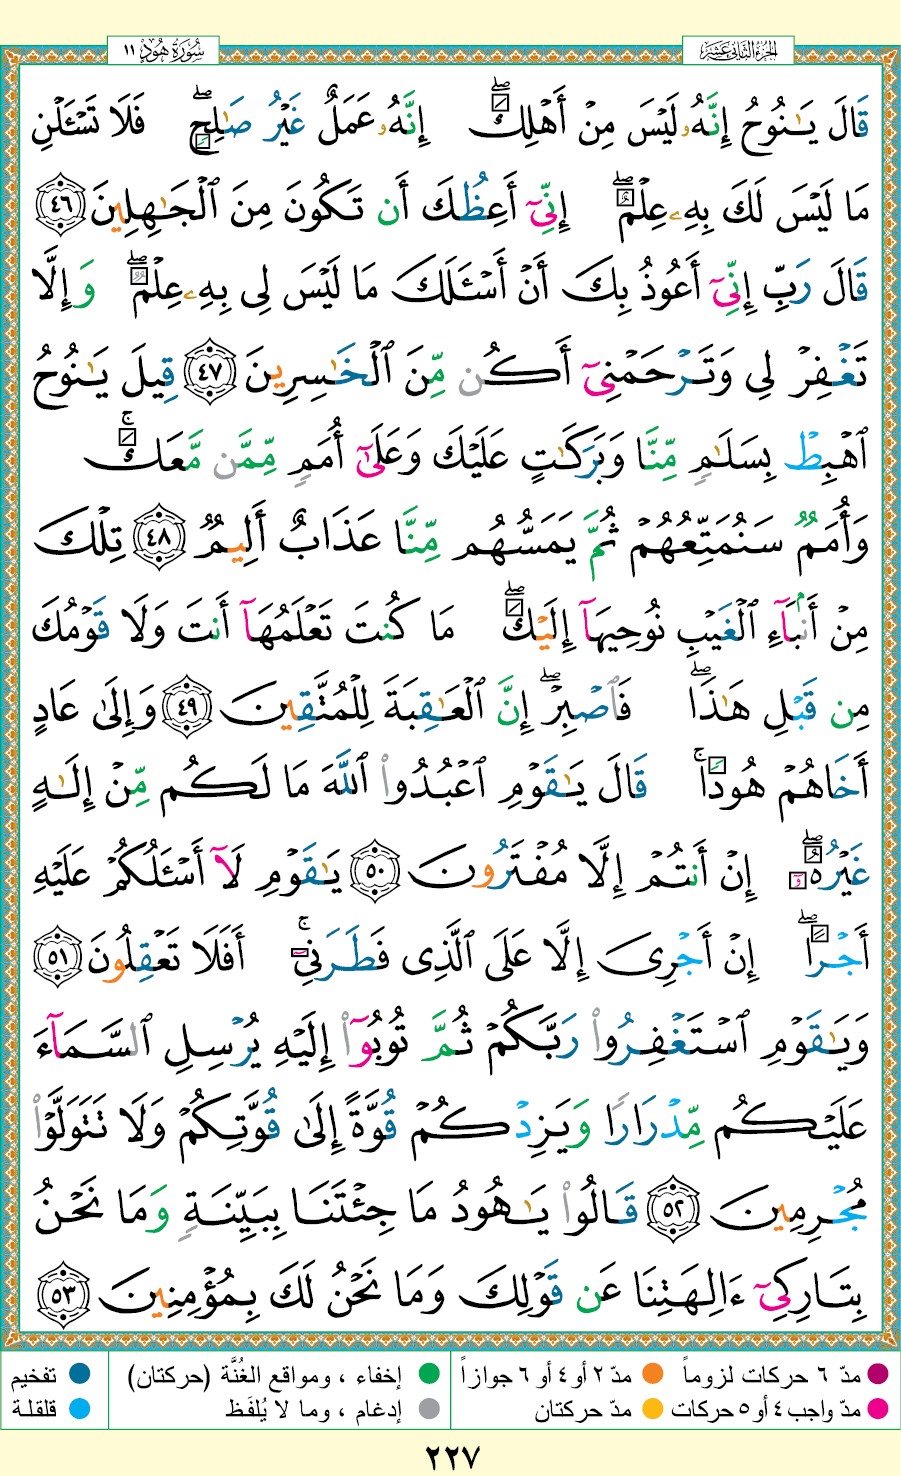 الجزء الثاني عشر
سورة هود ١١
قَالَ يَٰنُوحُ إِنَّهُۥ لَيْسَ مِنْ أَهْلِكَۖ إِنَّهُۥ عَمَلٌ غَيْرُ صَٰلِحٖۖ فَلَا تَسْـَٔلْنِ
مَا لَيْسَ لَكَ بِهِۦ عِلْمٌۖ إِنِّيٓ أَعِظُكَ أَن تَكُونَ مِنَ ٱلْجَٰهِلِينَ ٤٦
قَالَ رَبِّ إِنِّيٓ أَعُوذُ بِكَ أَنْ أَسْـَٔلَكَ مَا لَيْسَ لِي بِهِۦ عِلْمٌۖ وَإِلَّا
تَغْفِرْ لِي وَتَرْحَمْنِيٓ أَكُن مِّنَ ٱلْخَٰسِرِينَ ٤٧ قِيلَ يَٰنُوحُ
ٱهْبِطْ بِسَلَٰمٍ مِّنَّا وَبَرَكَٰتٍ عَلَيْكَ وَعَلَىٰٓ أُمَمٍ مِّمَّن مَّعَكَۚ
وَأُمَمٌ سَنُمَتِّعُهُمْ ثُمَّ يَمَسُّهُم مِّنَّا عَذَابٌ أَلِيمٌ ٤٨ تِلْكَ
مِنْ أَنۢبَآءِ ٱلْغَيْبِ نُوحِيهَآ إِلَيْكَۖ مَا كُنتَ تَعْلَمُهَآ أَنتَ وَلَا قَوْمُكَ
مِن قَبْلِ هَٰذَاۖ فَٱصْبِرْۖ إِنَّ ٱلْعَٰقِبَةَ لِلْمُتَّقِينَ ٤٩ وَإِلَىٰ عَادٍ
أَخَاهُمْ هُودًاۚ قَالَ يَٰقَوْمِ ٱعْبُدُوا۟ ٱللَّهَ مَا لَكُم مِّنْ إِلَٰهٍ
غَيْرُهُۥٓۖ إِنْ أَنتُمْ إِلَّا مُفْتَرُونَ ٥٠ يَٰقَوْمِ لَآ أَسْـَٔلُكُمْ عَلَيْهِ
أَجْرًاۖ إِنْ أَجْرِيَ إِلَّا عَلَى ٱلَّذِي فَطَرَنِيٓۚ أَفَلَا تَعْقِلُونَ ٥١
وَيَٰقَوْمِ ٱسْتَغْفِرُوا۟ رَبَّكُمْ ثُمَّ تُوبُوٓا۟ إِلَيْهِ يُرْسِلِ ٱلسَّمَآءَ
عَلَيْكُم مِّدْرَارًا وَيَزِدْكُمْ قُوَّةً إِلَىٰ قُوَّتِكُمْ وَلَا تَتَوَلَّوْا۟
مُجْرِمِينَ ٥٢ قَالُوا۟ يَٰهُودُ مَا جِئْتَنَا بِبَيِّنَةٍ وَمَا نَحْنُ
بِتَارِكِيٓ ءَالِهَتِنَا عَن قَوْلِكَ وَمَا نَحْنُ لَكَ بِمُؤْمِنِينَ ٥٣
مدّ ٦ حركات لزوماً مدّ ٢ أو ٤ أو ٦ جوازاً إخفاء ، ومواقع الغُنَّة (حركتان) تفخيم
مدّ واجب ٤ أو ٥ حركات مدّ حركتان إدغام ، وما لا يُلفَظ قلقلة
٢٢٧